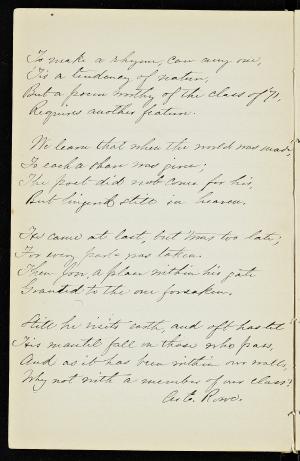 To make a rhyme, can any one,
'Tis a tendency of nature,
But a poem worthy of the class of '71,
Requires another feature.
We learn that when the world was made,
To each a share was given;
The poet did not come for his,
But lingered still in heaven.
He came at last, but 'twas too late;
For every part was taken.
Then Jove, a place within his gate
Granted to the one forsaken.
Still he visits earth, and oft has let
His mantel fall on those who pass,
And as it has been within our walls,
Why not with a member of our class?
Geo. E. Rowe.